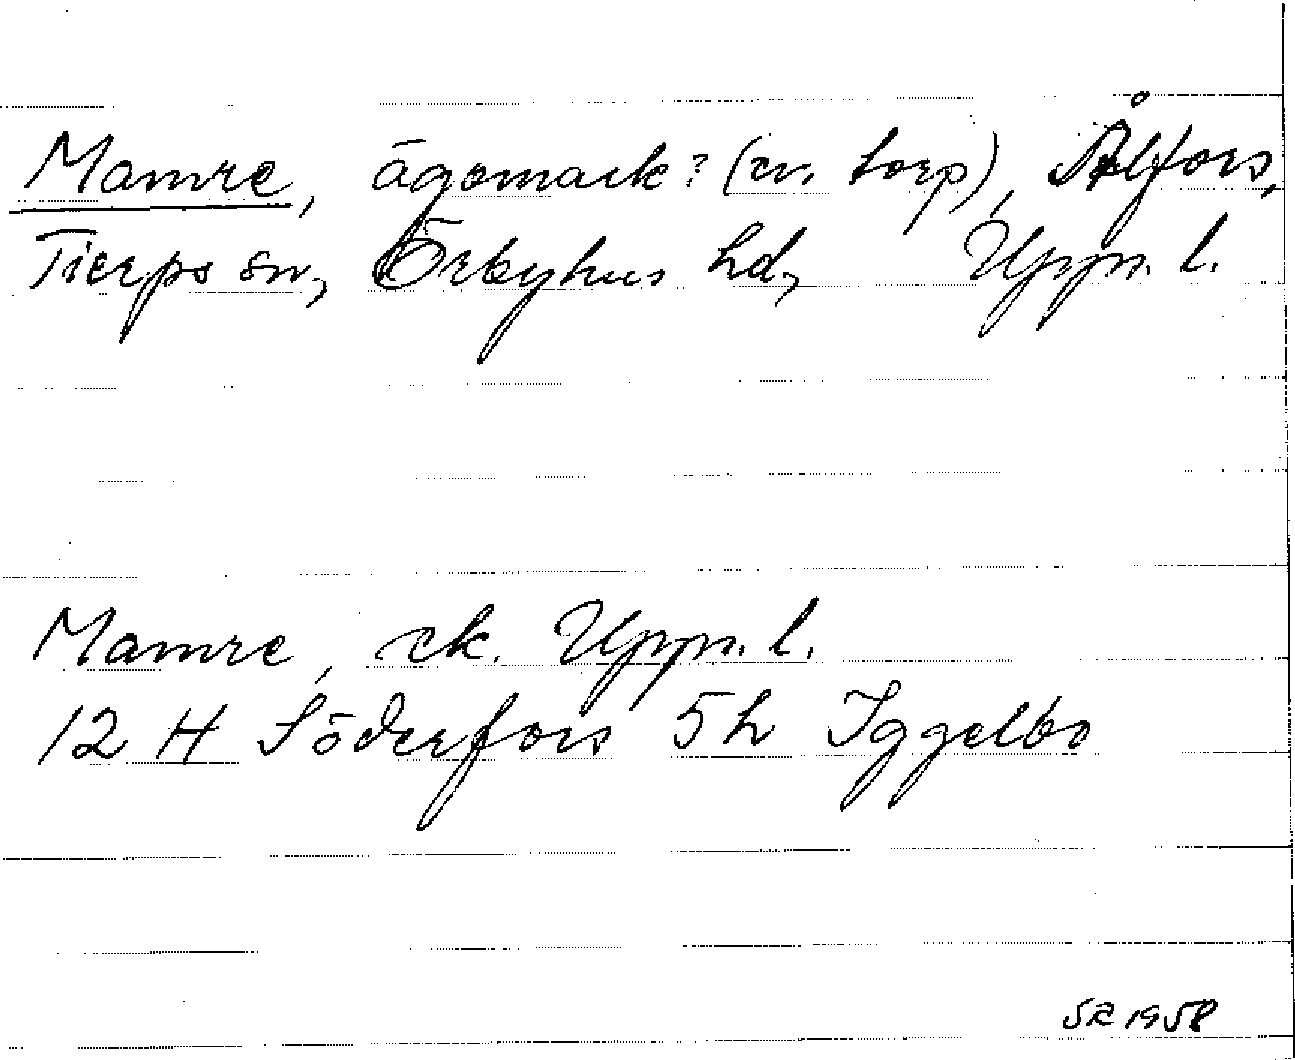 Mamre, ägomark? (ev. torp), Ålfors,
Tierps sn, Örbyhus hd, Uppl. l.
Mamre, ek. Uppl. l.
12 H Söderfors 5h Iggelbo
SR 1958